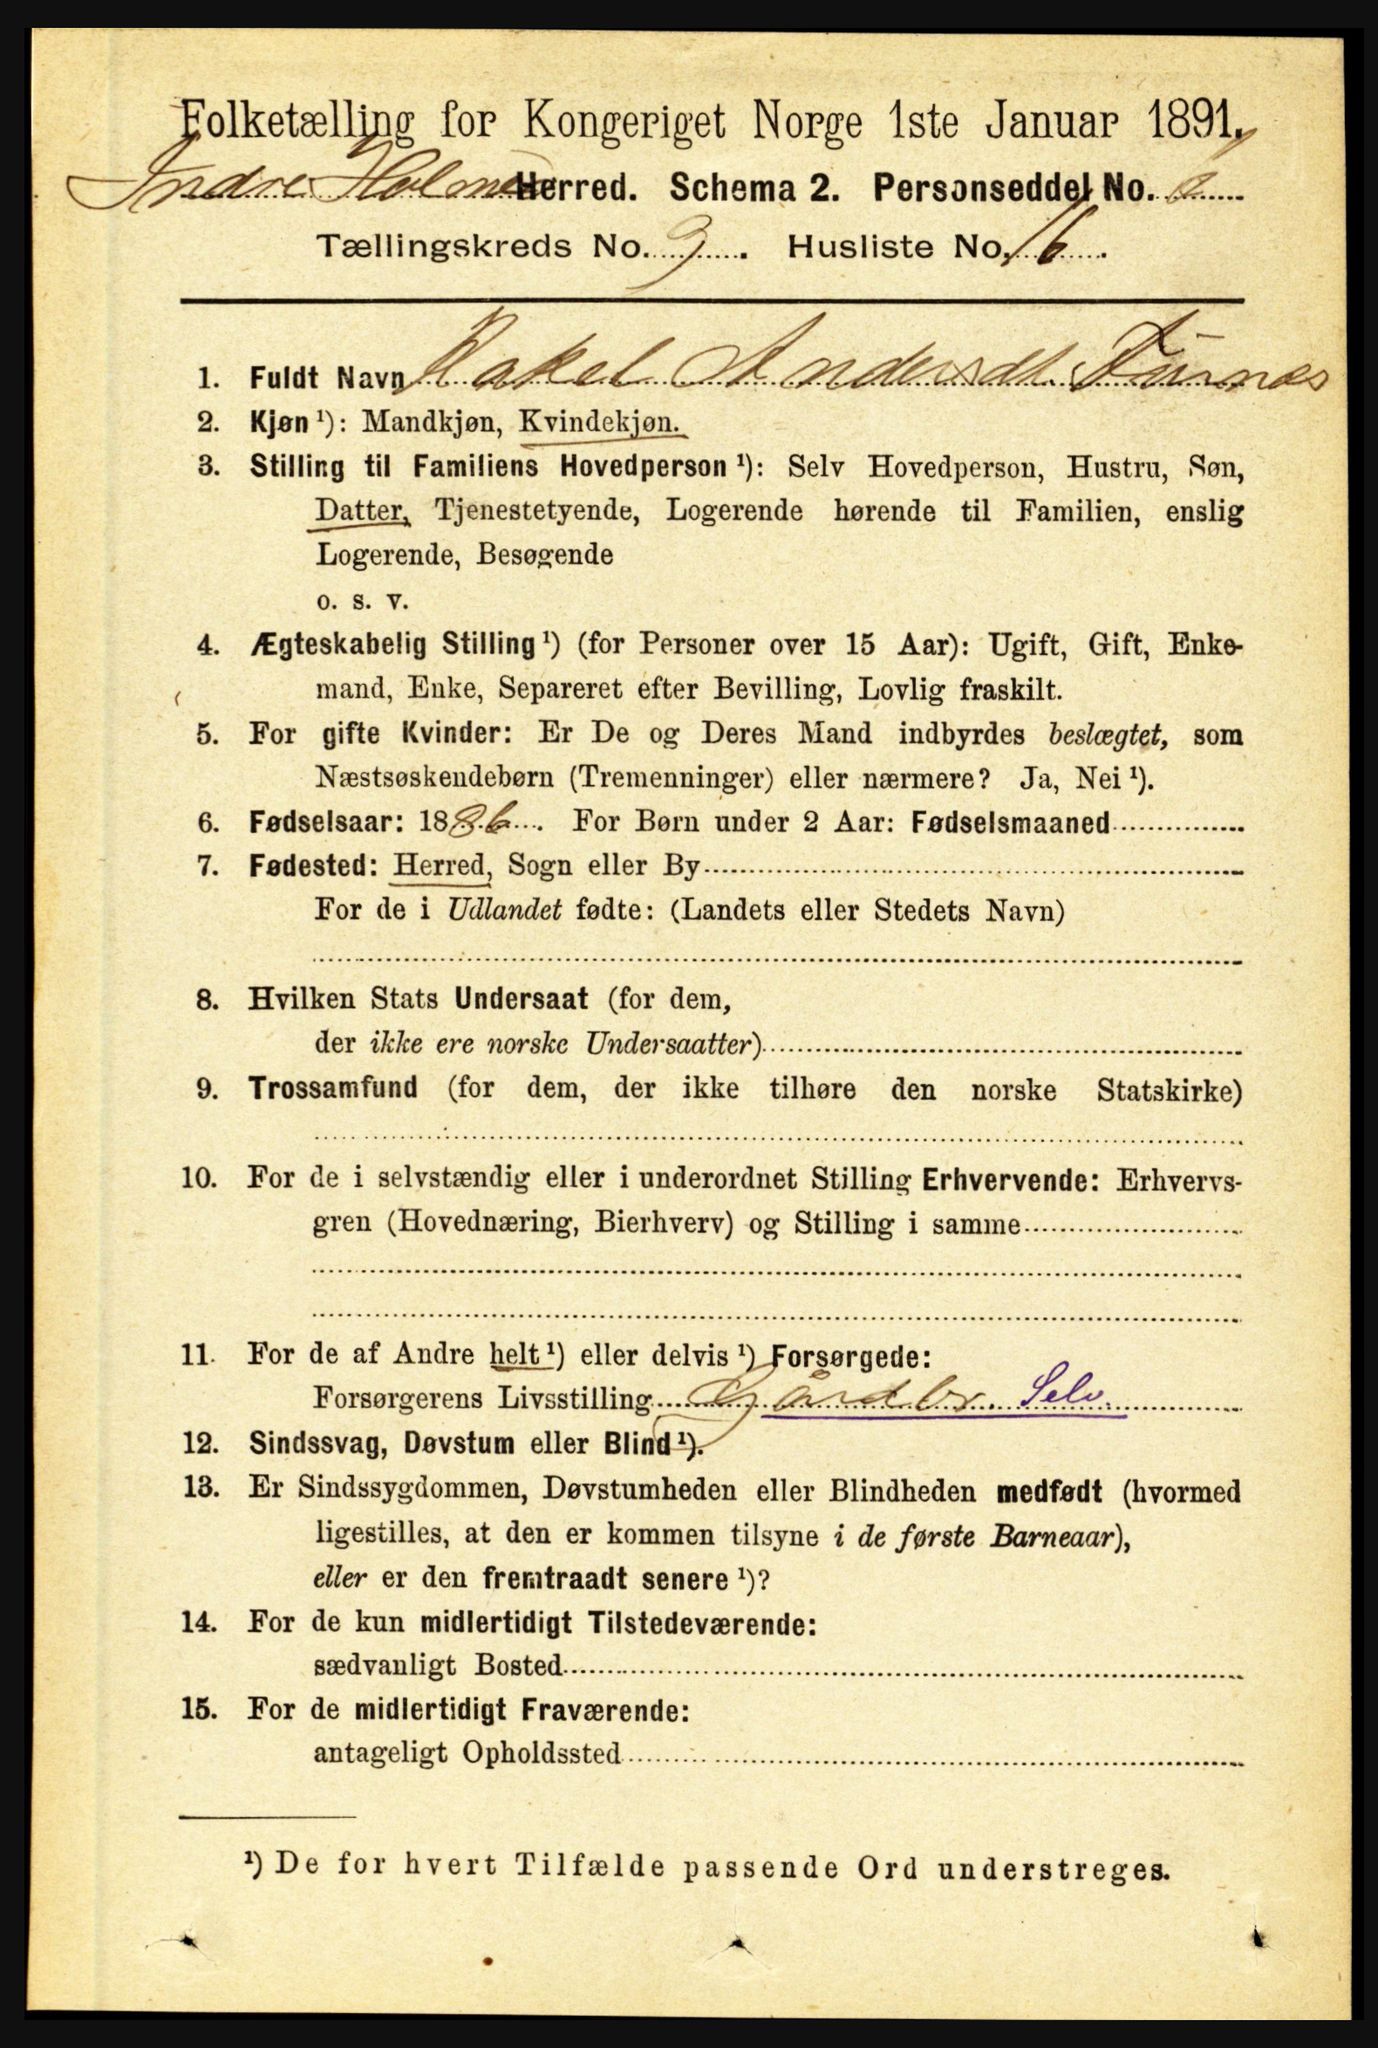 Folketælling for Kongeriget Norge 1ste Januar 1891.
Indre Holmedal Herred. Schema 2. Personseddel No.
Tællingskreds No. 3. Husliste No. 16.
1. Fuldt Navn Rakel Andersdt. Furnes
2. Kjøn ¹): Mandkjøn, Kvindekjøn.
3. Stilling til Familiens Hovedperson ¹): Selv Hovedperson, Hustru, Søn,
Datter, Tjenestetyende, Logerende hørende til Familien, enslig
Logerende, Besøgende
o. s. v.
4. Ægteskabelig Stilling ¹) (for Personer over 15 Aar): Ugift, Gift, Enke-
mand, Enke, Separeret efter Bevilling, Lovlig fraskilt.
5. For gifte Kvinder: Er De og Deres Mand indbyrdes beslægtet, som
Næstsøskendebørn (Tremenninger) eller nærmere? Ja, Nei ¹).
6. Fødselsaar: 1886. For Børn under 2 Aar: Fødselsmaaned
7. Fødested: Herred, Sogn eller By
For de i Udlandet fødte: (Landets eller Stedets Navn)
8. Hvilken Stats Undersaat (for dem,
der ikke ere norske Undersaatter)
9. Trossamfund (for dem, der ikke tilhøre den norske Statskirke)
10. For de i selvstændig eller i underordnet Stilling Erhvervende: Erhvervs-
gren (Hovednæring, Bierhverv) og Stilling i samme
11. For de af Andre helt ¹) eller delvis ¹) Forsørgede:
Forsørgerens Livsstilling Gårdbr. Selv.
12. Sindssvag, Døvstum eller Blind ¹).
13. Er Sindssygdommen, Døvstumheden eller Blindheden medfødt (hvormed
ligestilles, at den er kommen tilsyne i de første Barneaar),
eller er den fremtraadt senere ¹)?
14. For de kun midlertidigt Tilstedeværende:
sædvanligt Bosted
15. For de midlertidigt Fraværende:
antageligt Opholdssted
¹) De for hvert Tilfælde passende Ord understreges.